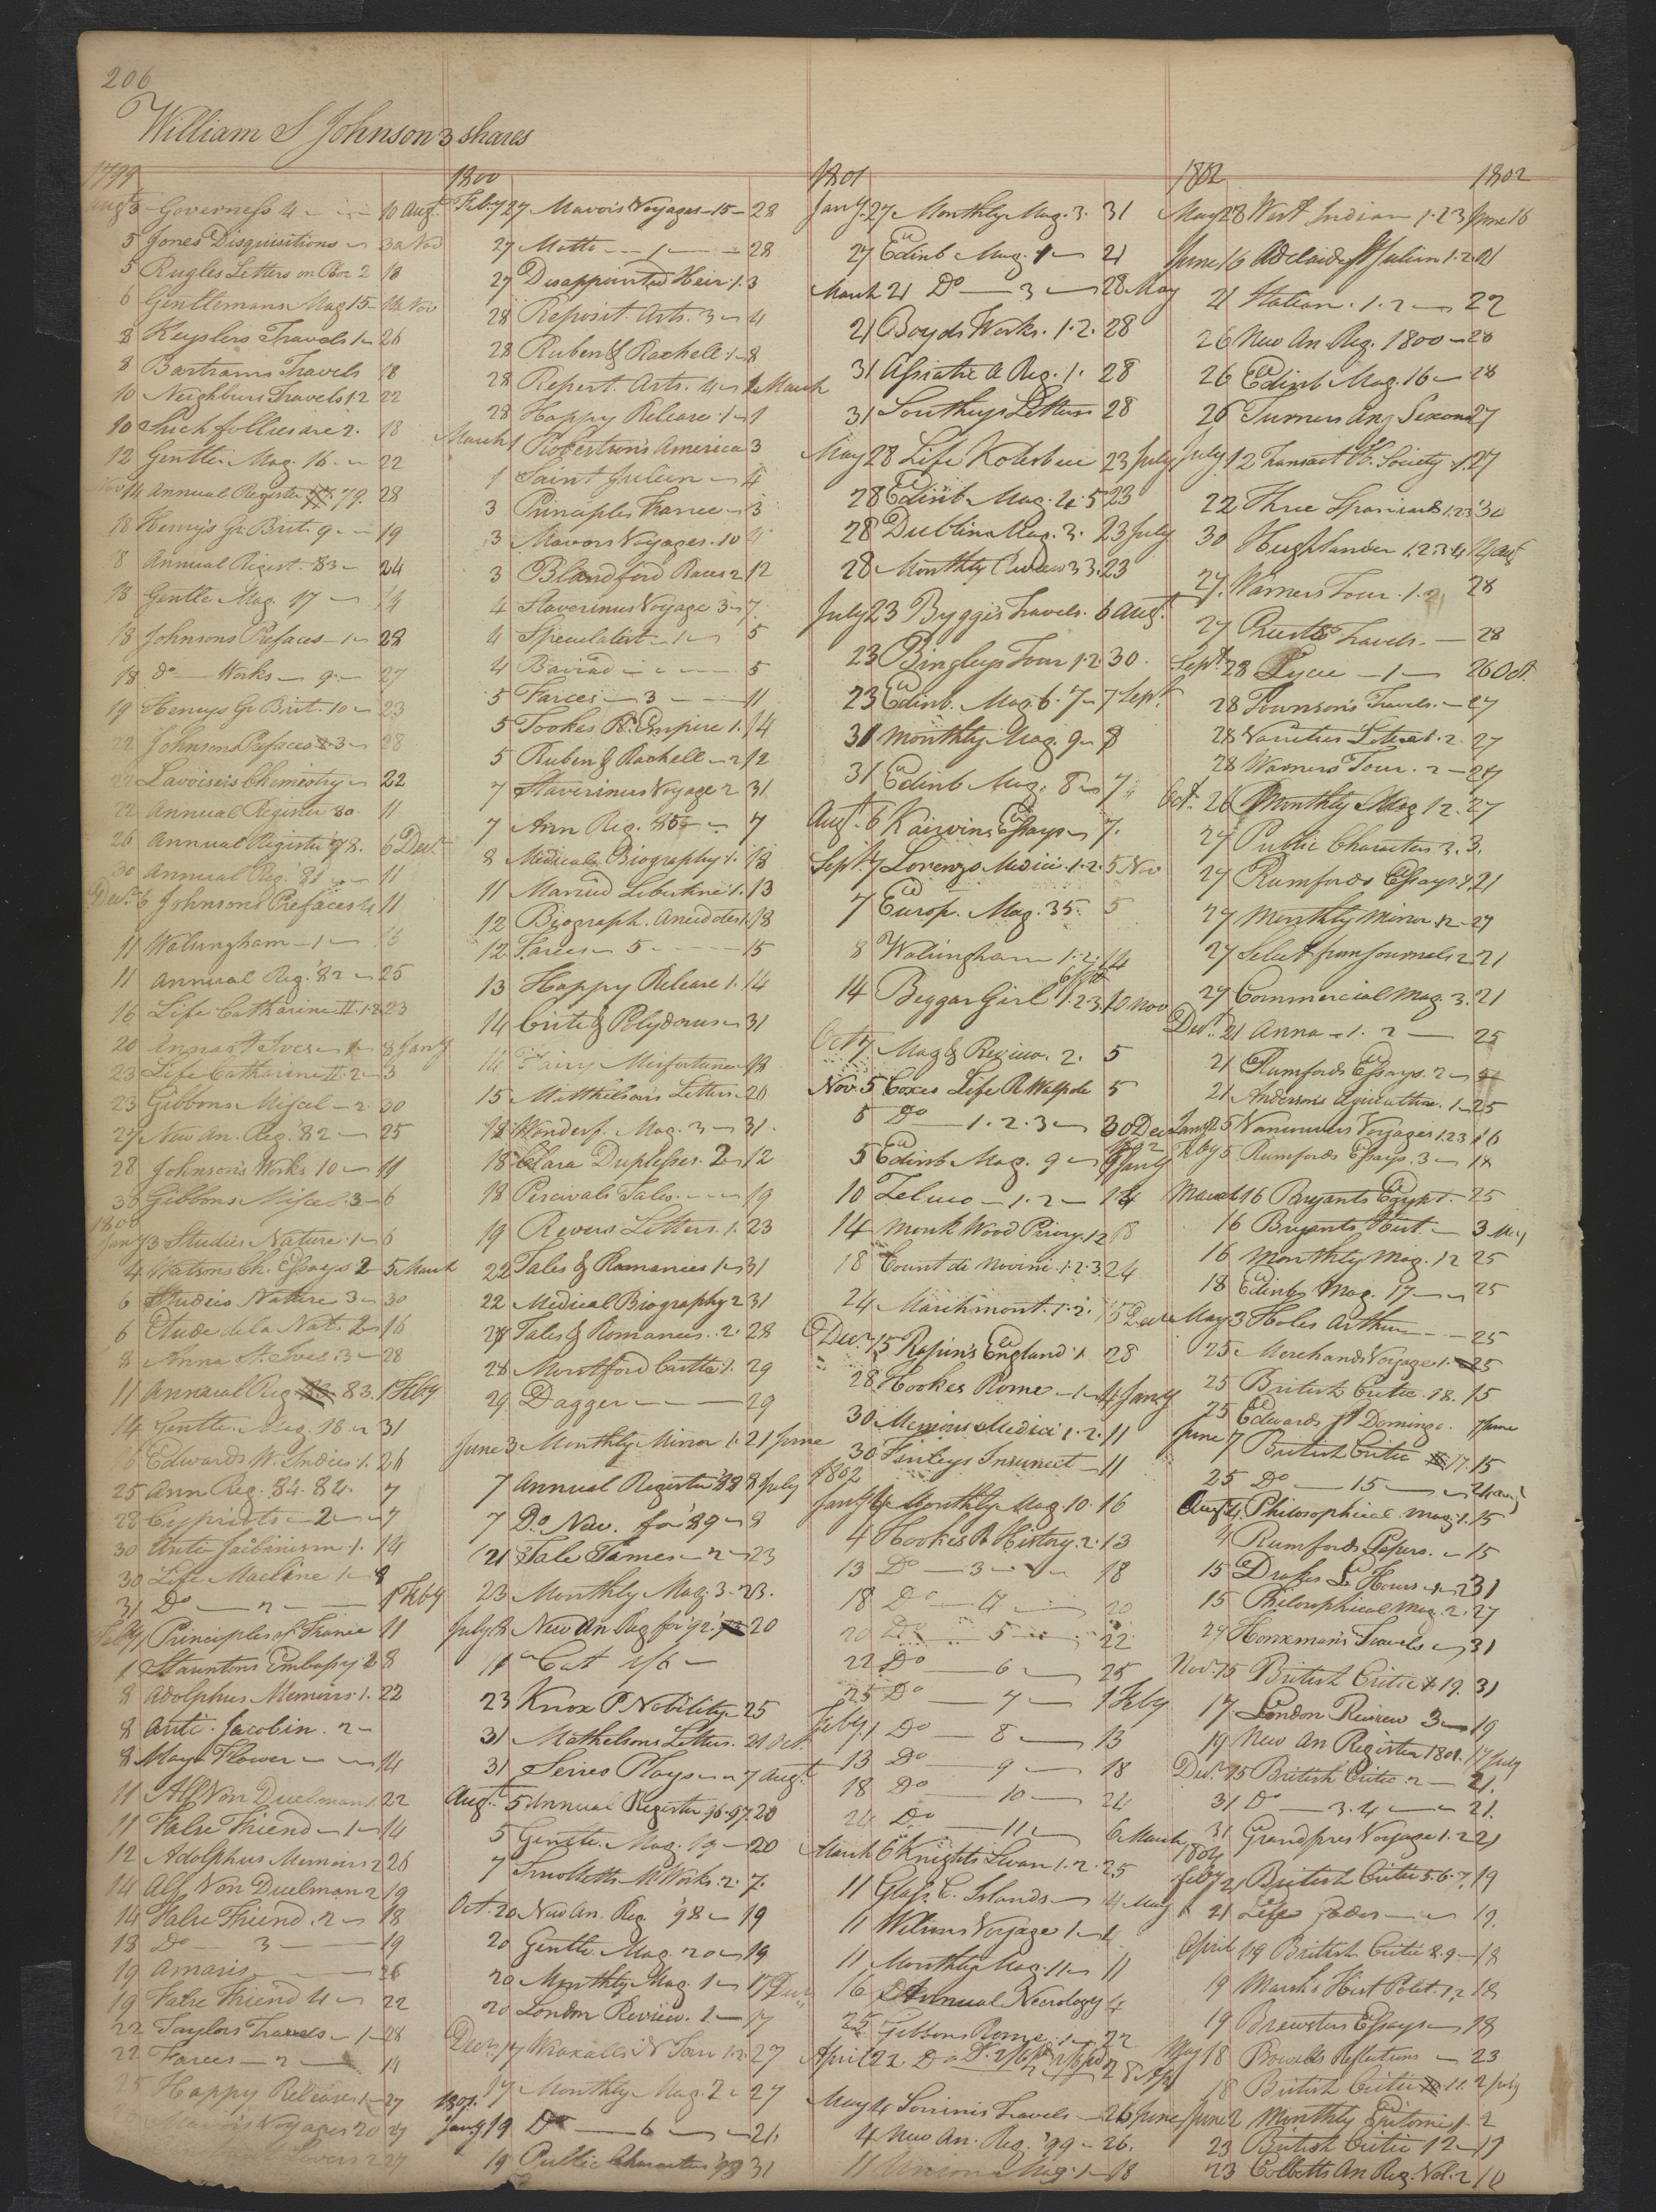 206
William S Johnson 3 shares
1799
Augt 3 Governess 4 10 Augt
5 Jones Disquisitions
5 Rugles Letters on Poor 2 18
6 Gentlemans Mag 15 Nov
8 Keyslers Travels 1 26
8 Bartrams Travels 18
10 Neighburs Travels 1.2 22
10 Such follies are 2. 18
12 Gentle. Mag. 16 22
14 Annual Register 79. 28
18 Henry's Gr Brit. 9 19
8 Annual Regist. 83 24
18 Gentle Mag. 17 14
18 Johnsons Prefaces 1 28
18 do Works 9 27
19 Henrys Gr Brit. 10 23
22 Johnsons Prefaces 3 28
22 Lavoiseis Chemistry 22
22 Annual Register 80. 11
26 Annual Register 78. 6 Decr
30 Annual Reg. '81 11
Decr 6 Johnsons Prefaces 4 11
11 Walsingham 1
11 Annual Reg. '82 25
16 Life Catharine II. 1.2 23
20 Anna St Ives 8 Jany
23 Life Catharine II. 2 3
23 Gibbons Miscel 2. 30
27 New An. Reg. '82 25
28 Johnson's Works 10 11
30 Gibbons Miscel. 3 6
1800
Jany 3 Studies Nature 1 6
4 Watsons Ch. Essays 2 5 March
6 Studies Nature 3 30
6 Etude de la Nat. 2 16
8 Anna St. Ives. 3 28
11 Annual Reg 83. 1 Feby
14 Gentle. Mag. 18 31
16 Edwards W. Indies 1. 26
25 Ann Reg. 84. 84. 7
28 Cypriots 2 7
30 Anti Jacibinism 1. 14
30 Life Macline 1 8
31 Do 2 1 Feby
Feby 1 Principles of France 11
1 Stauntons Embassy 2 8
8 Adolphus Memoirs 1. 22
8 Anti. Jacobin. 2
8 May Flower 14
11 Alf Von Duelman 1. 22
11 False Friend 1 14
12 Adolphus Memoirs 2 26
14 Alf Von Duelman 2 19
14 False Friend. 2 18
18 Do 3 19
19 Amaris 26
19 False Friend 4 22
22 Taylors Travels 1 28
22 Farces 2 11
25 Happy Release 1 27
Voyages 20 27
Lovers 2 27
1800
Feby 27 Mavois Voyages 15 28
27 Motto 1 28
27 Disappointed Heir 1. 3
28 Reposit. Arts. 3 4
28 Ruben & Rachell 1 8
28 Repert. Arts. 4 1 March
28 Happy Release 1 1
March 1 Robertson's America 3
1 Saint Julien 4
3 Principles France 3
3 Mavors Voyages. 10 4
3 Blandford Races 2 12
4 Staverinus Voyage 3 7.
4 Speculatist 1 5
4 Baviad 5
5 Farces 3 11
5 Tookes R. Empire 1. 14
5 Ruben & Rachell 2 12
7 Staverinus Voyage 2 31
7 Ann Reg. 85 7
8 Medical Biography 1. 18
11 Married Libertine 1. 13
12 Biograph. Anecdotes 1. 18
12 Farces 5 15
13 Happy Release 1. 14
14 Crito & Polydorus 31
14 Fairy Misfortunes 18
15 Matthelson's Letters 20
18 Wonderf. Mag. 3 31.
18 Clara Duplesses. 2 12
18 Percivals Tales 19
19 Revers Letters. 1. 23
22 Tales & Romances 1 31
22 Medical Biography 2 31
28 Tales & Romances. 2. 28
28 Mortford Castle 1. 29
29 Dagger 29
June 3 Monthly Mirror 1. 21 June
7 Annual Register '88 8 July
7 Do. New. for '89 8
21 Tale Times 2 23
23 Monthly Mag. 3 23.
July 8 New An Reg for '92. 20
11 Cat 1/6
23 Knox P Nobility 25
31 Mathelsons Letters. 21 Oct.
31 Series Plays 7 Augt
Augt. 5 Annual Register 96.97. 20
5 Gentle. Mag. 19 20
7 Smolletts M Works. 2. 7.
Oct. 20 New An. Reg. '98 19
20 Gentle. Mag. 20 19
20 Monthly Mag. 1 17 Decr
20 London Review. 1. 17
Decr. 17 Wraxalls N Tour 1.2. 27
17 Monthly Mag. 2 27
1801.
Jany 19 Do 6 21.
19 Public Characters '98 31
1801
Jany. 27 Monthly Mag. 3. 31
27 Edinb Mag. 1 21
March 21 Do 3 28 May
21 Boyds Works. 1.2. 28
31 Assiatic A Reg. 1. 28
31 Southeys Letters 28
May 28 Life Kotzebue 23 July
28 Edinb. Mag. 4.5 23
28 Dublin Mag. 3. 23 July
28 Monthly Review 33. 23
July 23 Bygge's Travels. 6 Augt.
23 Bingleys Tour 1.2. 30.
23 Edinb. Mag. 6. 7 7 Sept.
31 Monthly Mag. 9 8
31 Edinb Mag. 8 7
Augt. 6 Kairvins Essays 7.
Sept. 7 Lorenzo Medici 1.2. 5 Nov
7 Europ. Mag. 35. 5
8 Walsingham 1.2. 14
14 Beggar Girl 1.2.3. 10 Nov
Oct 7 Mag & Review. 2. 5
Nov. 5 Coxes Life R Walpole 5
5 Do 1.2.3 30 Decr
5 Edinb Mag. 9 Jany
10 Zeluco 1.2 14
14 Monk Wood Priory. 1.2 18
18 Count de Novini. 1.2.3. 24
24 Marchmont. 1.2. 15 Decr
Decr. 15 Rapin's England 1 28
28 Hookes Rome 1 4 Jany
30 Memoirs Medici 1.2. 11
30 Finleys Insurrect 11
1802
Jany 4 Monthly Mag 10. 16
4 Hookes R History. 2. 13
13 Do 3 18
18 Do 4 20
20 Do 5 22
22 Do 6 25
25 Do 7 1 Feby
Feby. 1 Do 8 13
13 Do 9 18
18 Do 10 24
24 Do. 11 6 March
March 6 Knights Swan 1.2. 25
11 Glass. C. Islands 4 May
11 Wilsons Voyage 1 4
11 Monthly Mag. 11 11
16 Annual Necrology 4
25 Gibbons Rome. 1 22
April 22 Do 28 Apl
May 4 Sonninis Travels 26 June
4 New An. Reg. '99 26.
11 Union Mag. 1 18
1802 1802
May 28 West Indian 1.2 3 June 16
June 16 Adelaide St Julien 1.2. 21
21 Italian. 1.2 22
26 New An Reg. 1800 28
26 Edinb Mag. 16 28
26 Turners Ang Sexons 27
July 12 Transact Society .1. 27
22 Three Spaniards 1.2.3 30
30 Highlander 1.2.3.4 14 Augt
27. Warners Tour. 1.2, 28
27 Travels. 28
Sept. 28 Lycee 1 26 Oct.
28 Townson's Travels. 27
28 Varieties Literat. 2. 27
28 Warners Tour. 2 27
Oct. 26 Monthly Mag 12. 27
27 Public Characters 3. 3.
27 Rumfords Essays. 1. 21
27 Monthly Mirror. 12 27
27 Select from Journals 2 21
27 Commercial Mag. 3. 21
Decr. 21 Anna 1. 2 25
21 Rumfords Essays. 2
21 Andersons Agriculture. 1 25
Jany 25 Vancouvers Voyages 1.2.3 16
Feby 5 Rumfords Essays. 3 18
March 16 Bryants Egypt. 25
16 Bryants Hist. 3 May
16 Monthly Mag. 12 25
18 Edinb. Mag. 17 25
May 3 Holes Arthur 25
25 Merchands Voyage 1. 25
25 British Critic. 18. 15
25 Edwards St Domingo. 7 June
June 7 British Critic 17. 15
25 Do 15 24 Augt
Augt 4. Philosophical Mag. 1. 15
4 Rumfords Papers. 15
15 Drakes L Hours 2 31
15 Philosophical Mag. 2. 27
27 Hornxman's Travels 31
Nov. 15 British Critic 19. 31
17 London Review 3 19
19 New An Register 1801. 17 July
Decr. 15 British Critic. 2 21.
31 Do 3.4 21.
31 Grandpres Voyage 1.2 21
1804
Feby 21 British Critic 5.6.7. 19
21 Life 19.
April 19 British Critic 8.9 18
19 Marsh's Hist Polit. 1.2 18
19 Brewsters Essays 18
May 18 Bowdlers Reflections 23
18 British Critic 11. 2 July
June 2 Monthly Epitome 1. 2
23 British Critic 12 17
23 Colbetts An Reg. Vol. 2 10